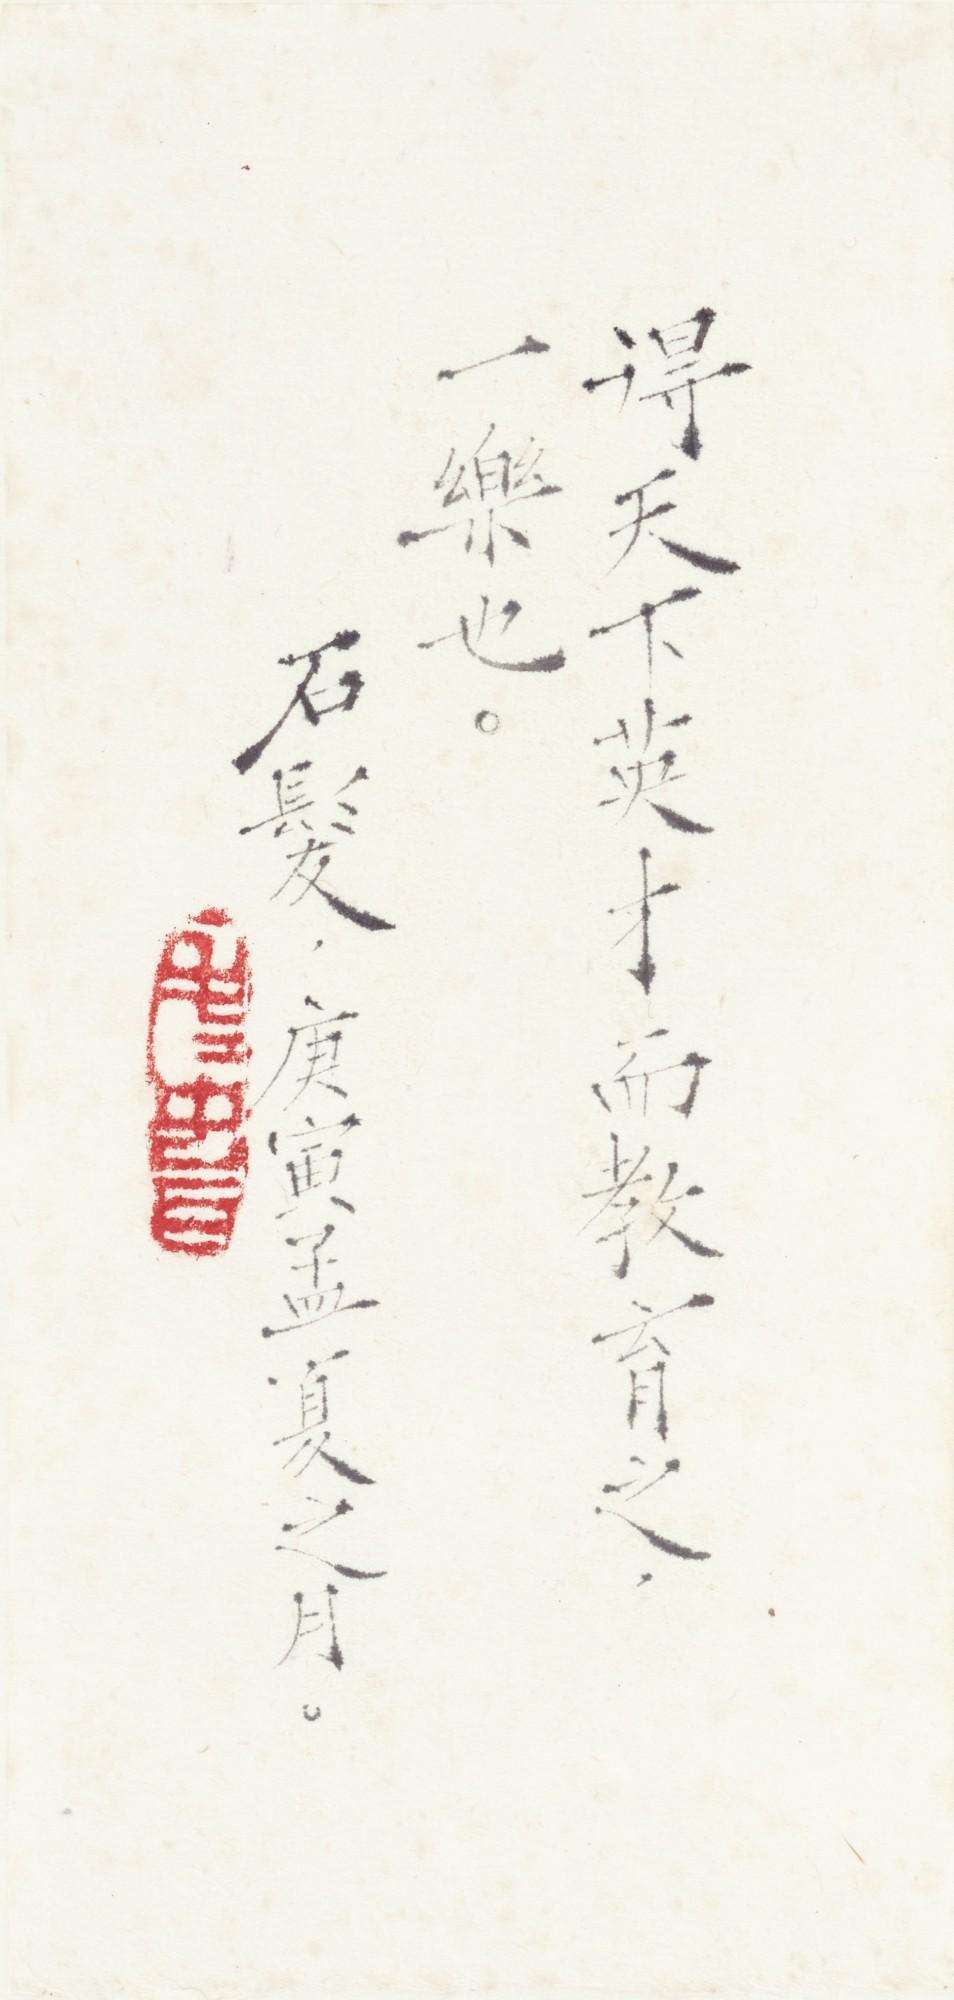 得天下英才而教育之，
一樂也。
石髮，庚寅孟夏之月。